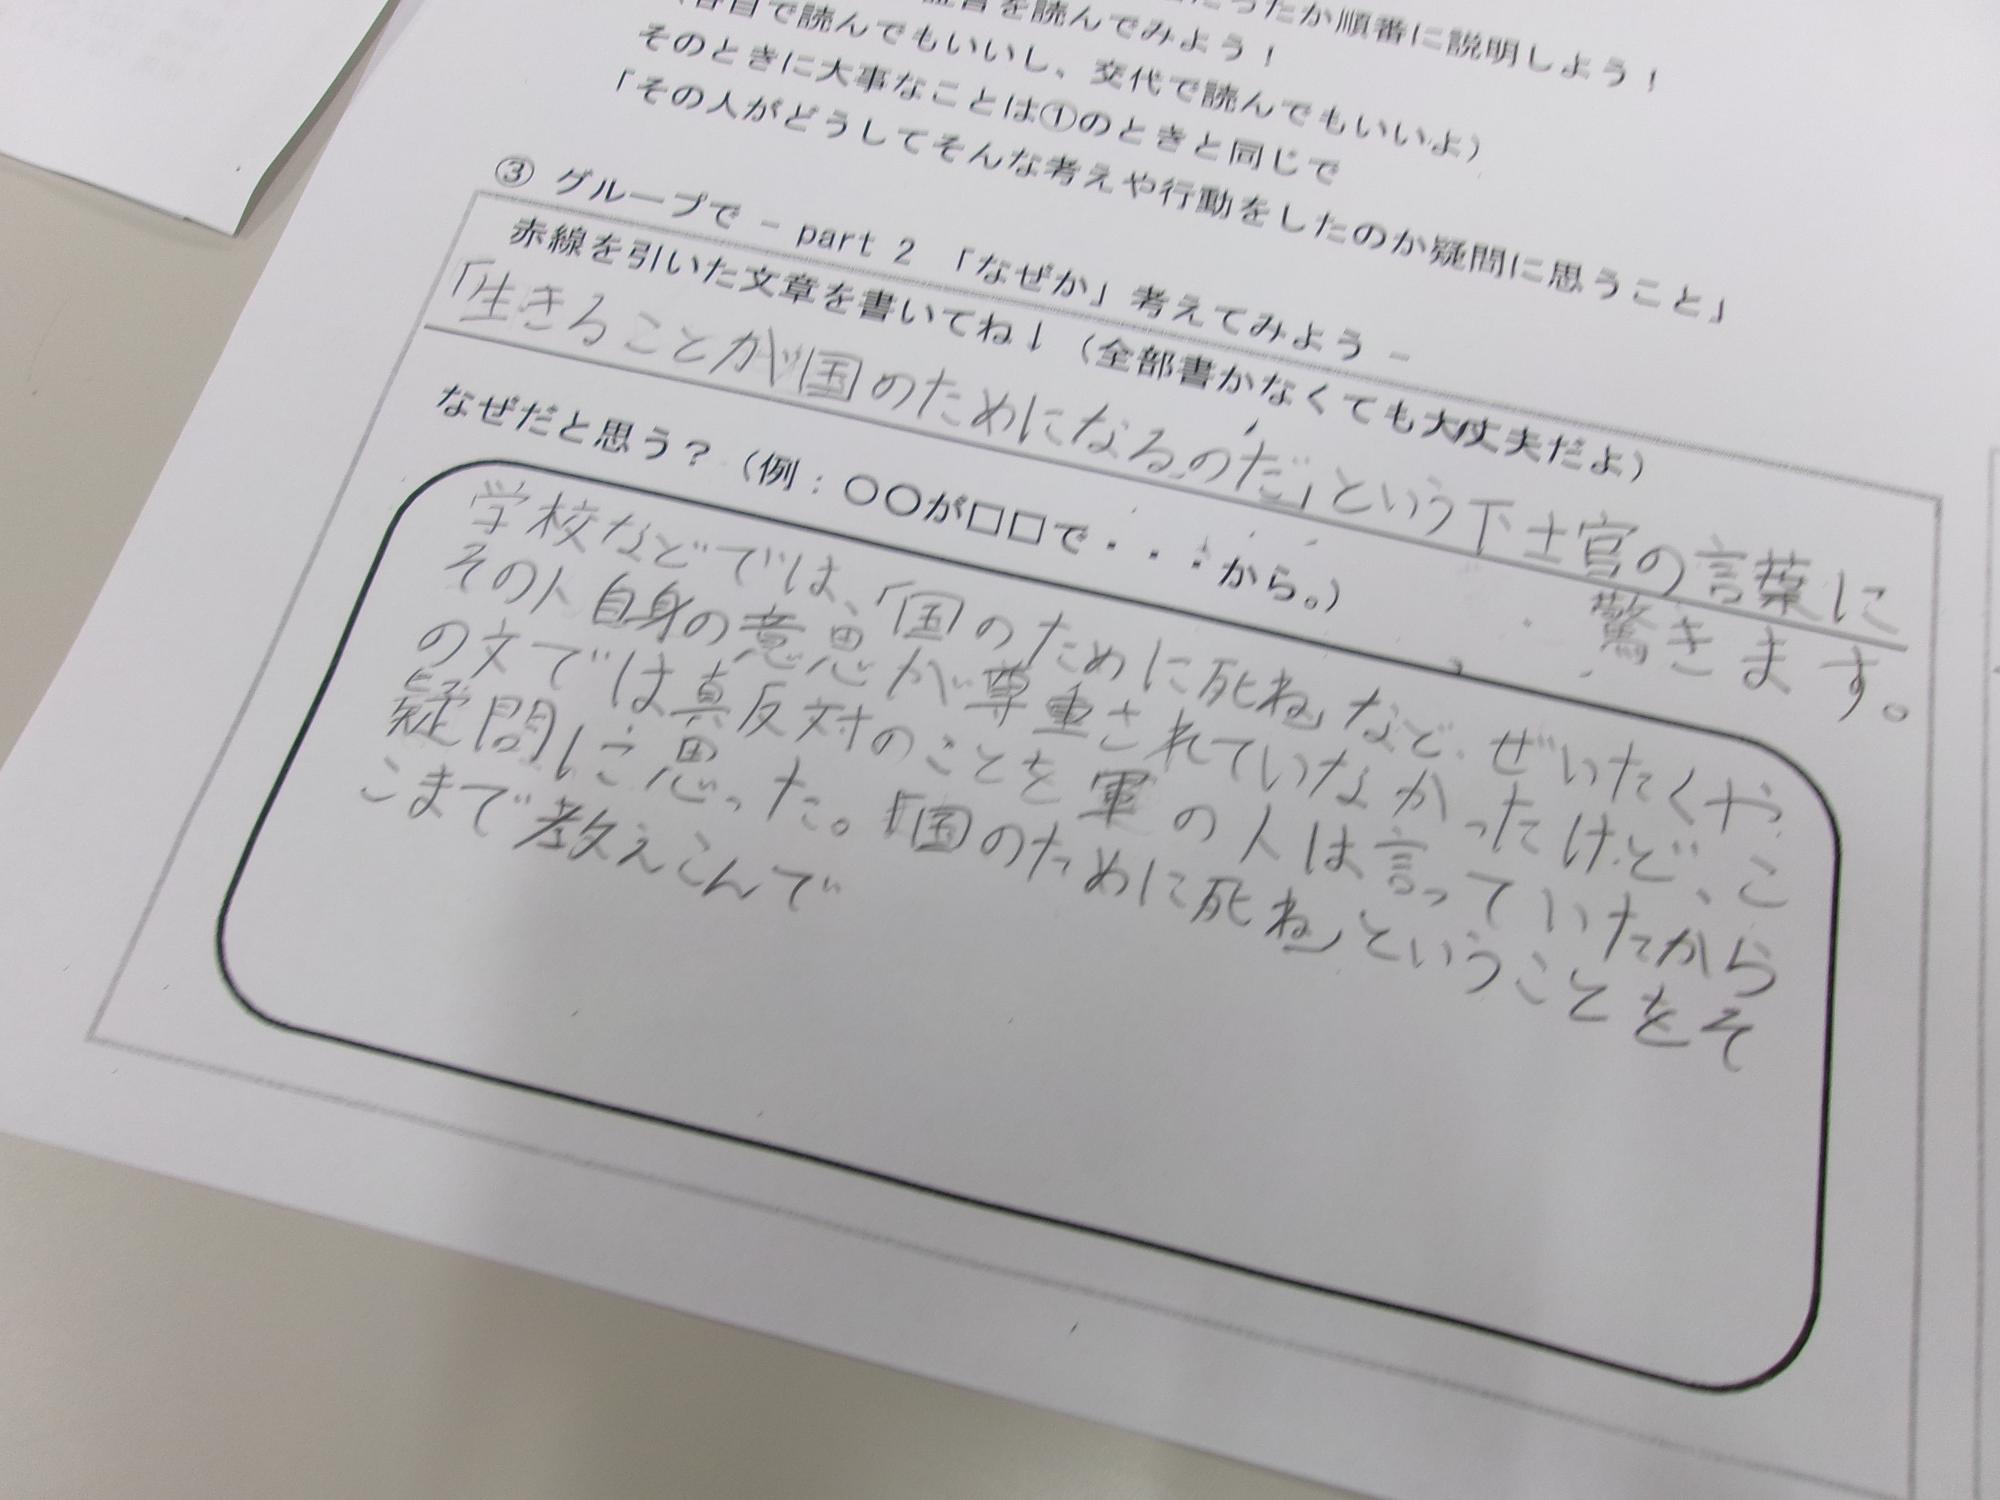 たったか順番に説明しよう！
を読んでみよう！
で読んでもいいし、交代で読んでもいいよ）
そのときに大事なことは①のときと同じで
「その人がどうしてそんな考えや行動をしたのか疑問に思うこと」
③ グループで - part 2 「なぜか」考えてみよう -
赤線を引いた文章を書いてね↓（全部書かなくても大丈夫だよ）
「生きることが国のためになるのだ」という下士官の言葉に
驚きます。
なぜだと思う？（例：〇〇が□□で・・・から。）
学校などでは、「国のために死ね」など、ぜいたくや
その人自身の意思が尊重されていなかったけど、こ
の文では真反対のことを軍の人は言っていたから
疑問に思った。「国のために死ね」ということをそ
こまで教えこんで